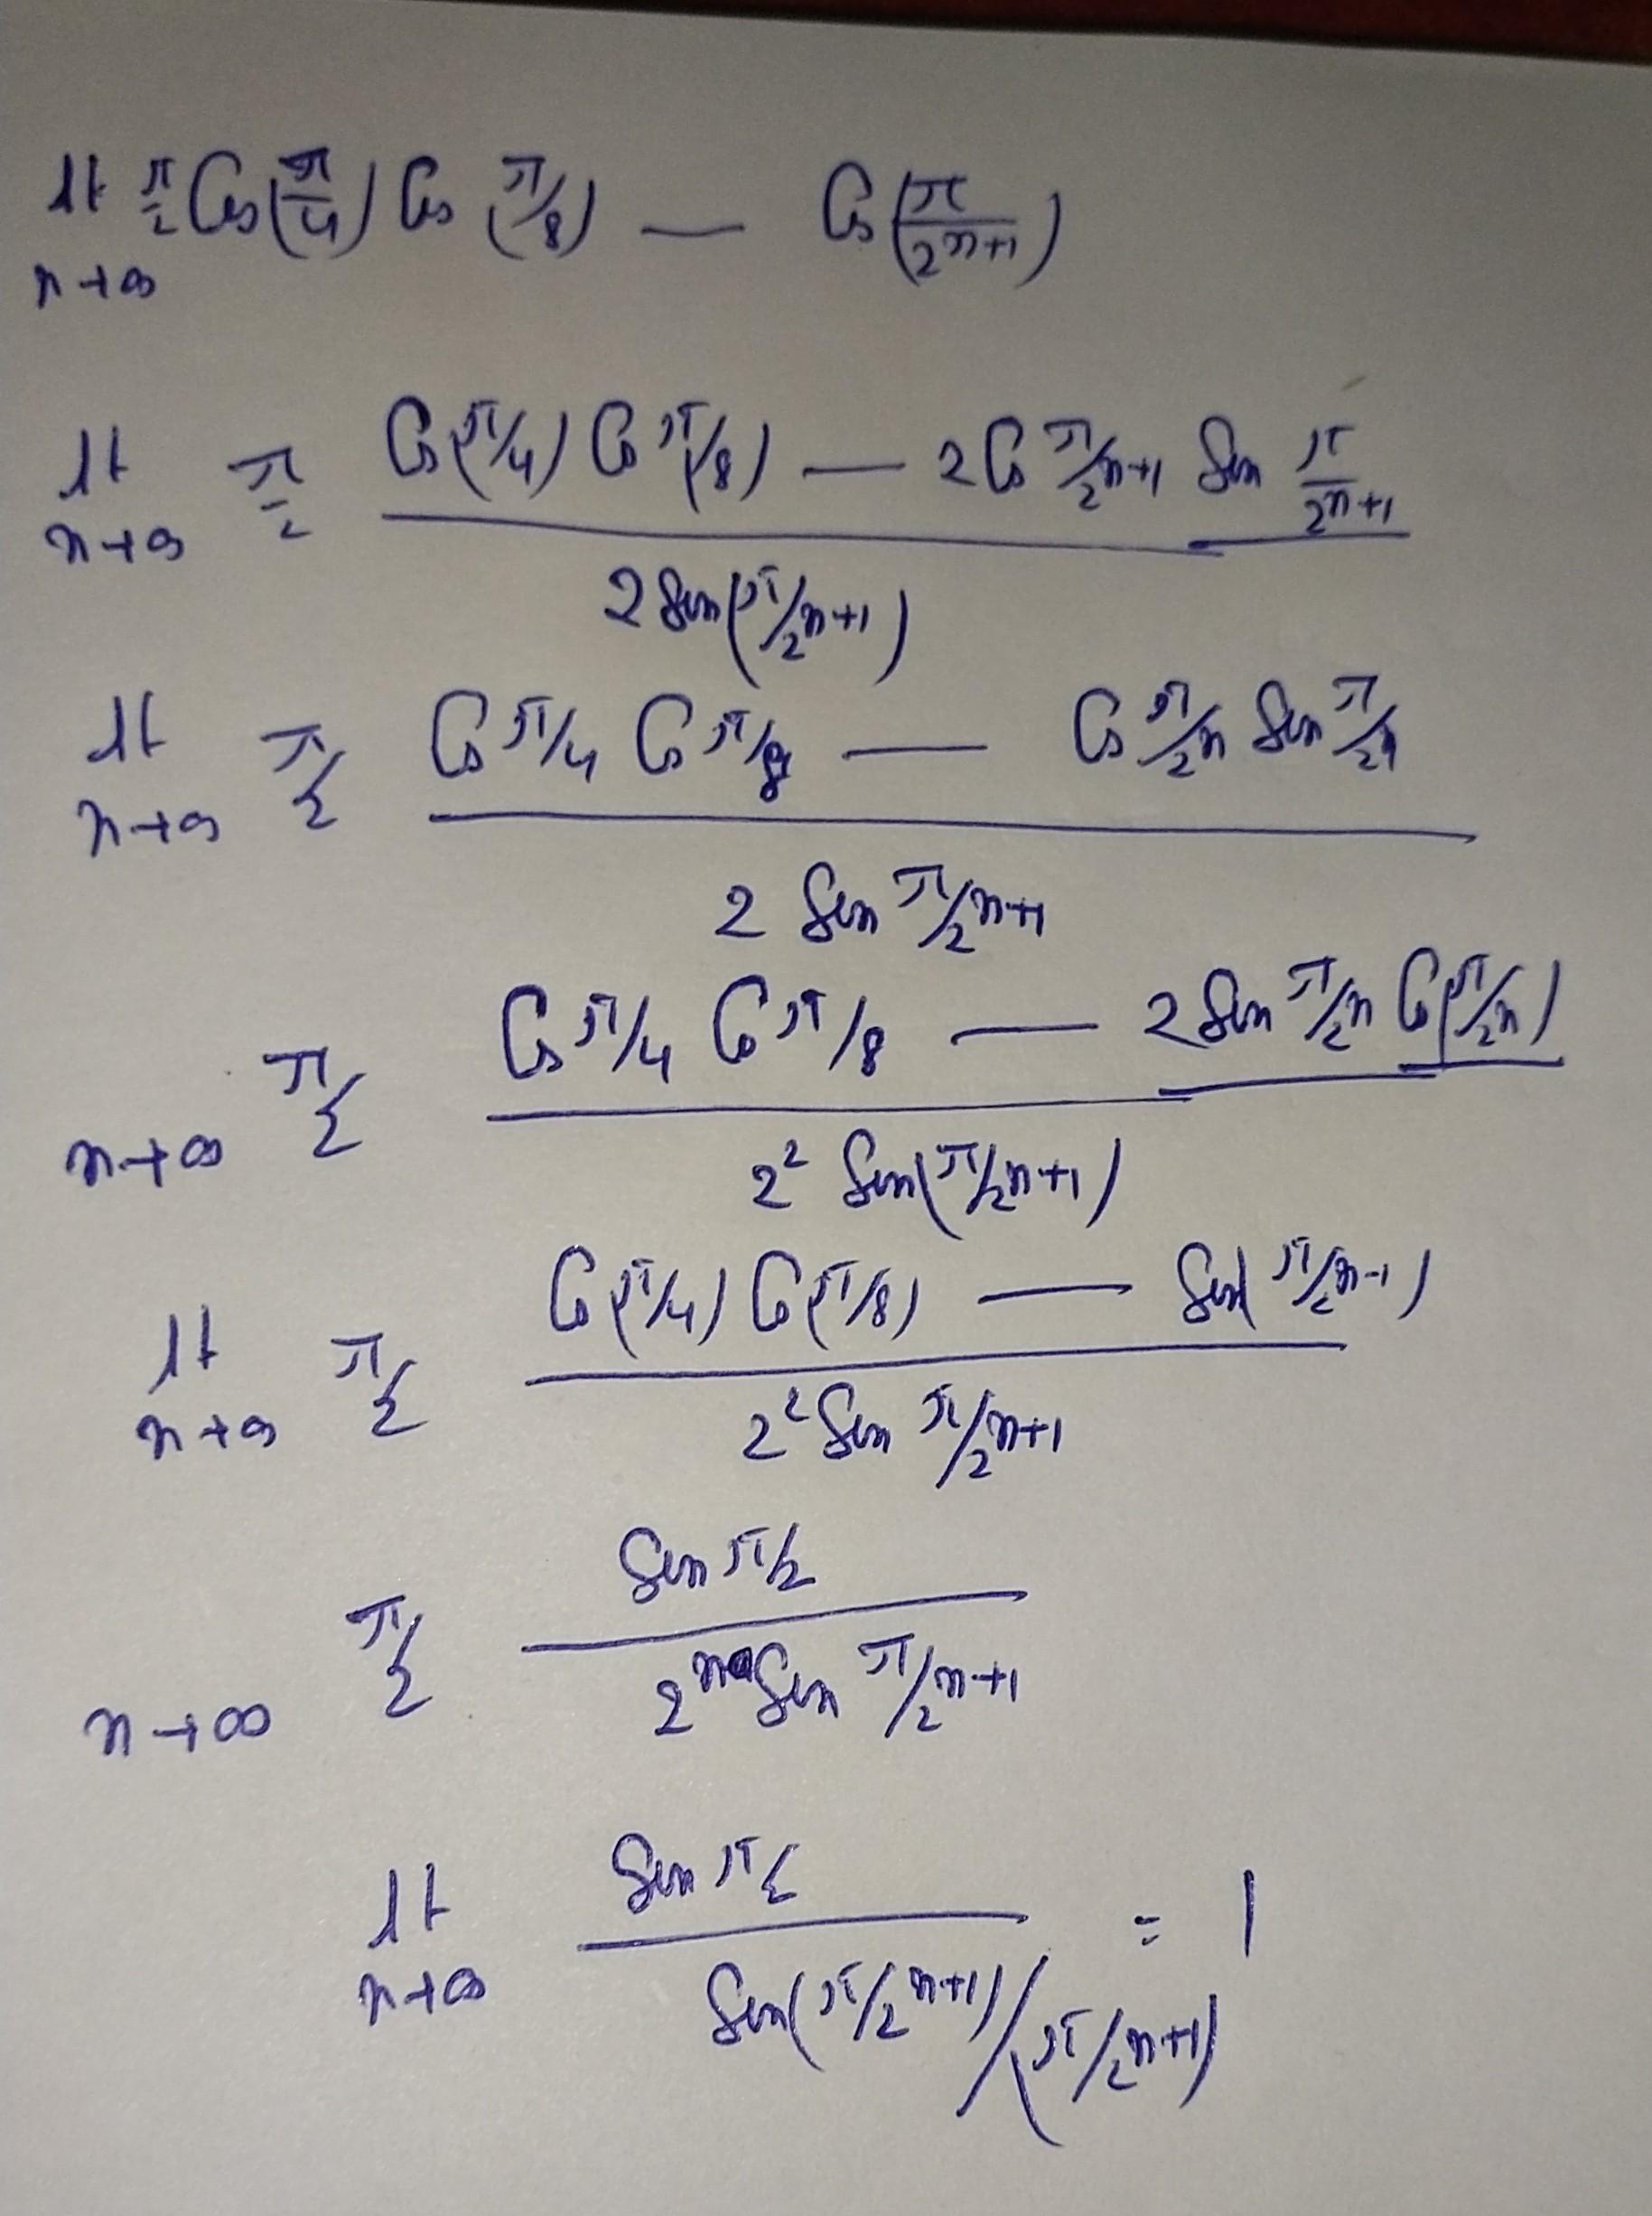 lt π/2 Cos(π/4) Cos (π/8) — Cos(π/2^(n+1))
n→∞
lt π/2 Cos(π/4) Cos(π/8) — 2Cos π/2^(n+1) Sin π/2^(n+1)
n→∞
2 Sin(π/2^(n+1))
lt π/2 Cos π/4 Cos π/8 — Cos π/2^n Sin π/2^n
n→∞
2 Sin π/2^(n+1)
π/2 Cos π/4 Cos π/8 — 2 Sin π/2^n Cos(π/2^n)
n→∞
2² Sin(π/2^(n+1))
lt π/2 Cos(π/4) Cos(π/8) — Sin(π/2^(n-1))
n→∞
2² Sin π/2^(n+1)
π/2 Sin π/2
n→∞
2^n Sin π/2^(n+1)
lt Sin π/2 = 1
n→∞
Sin(π/2^(n+1))/(π/2^(n+1))